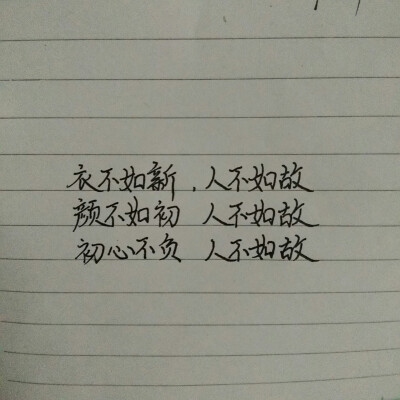 衣不如新，人不如故
颜不如初 人不如故
初心不负 人不如故